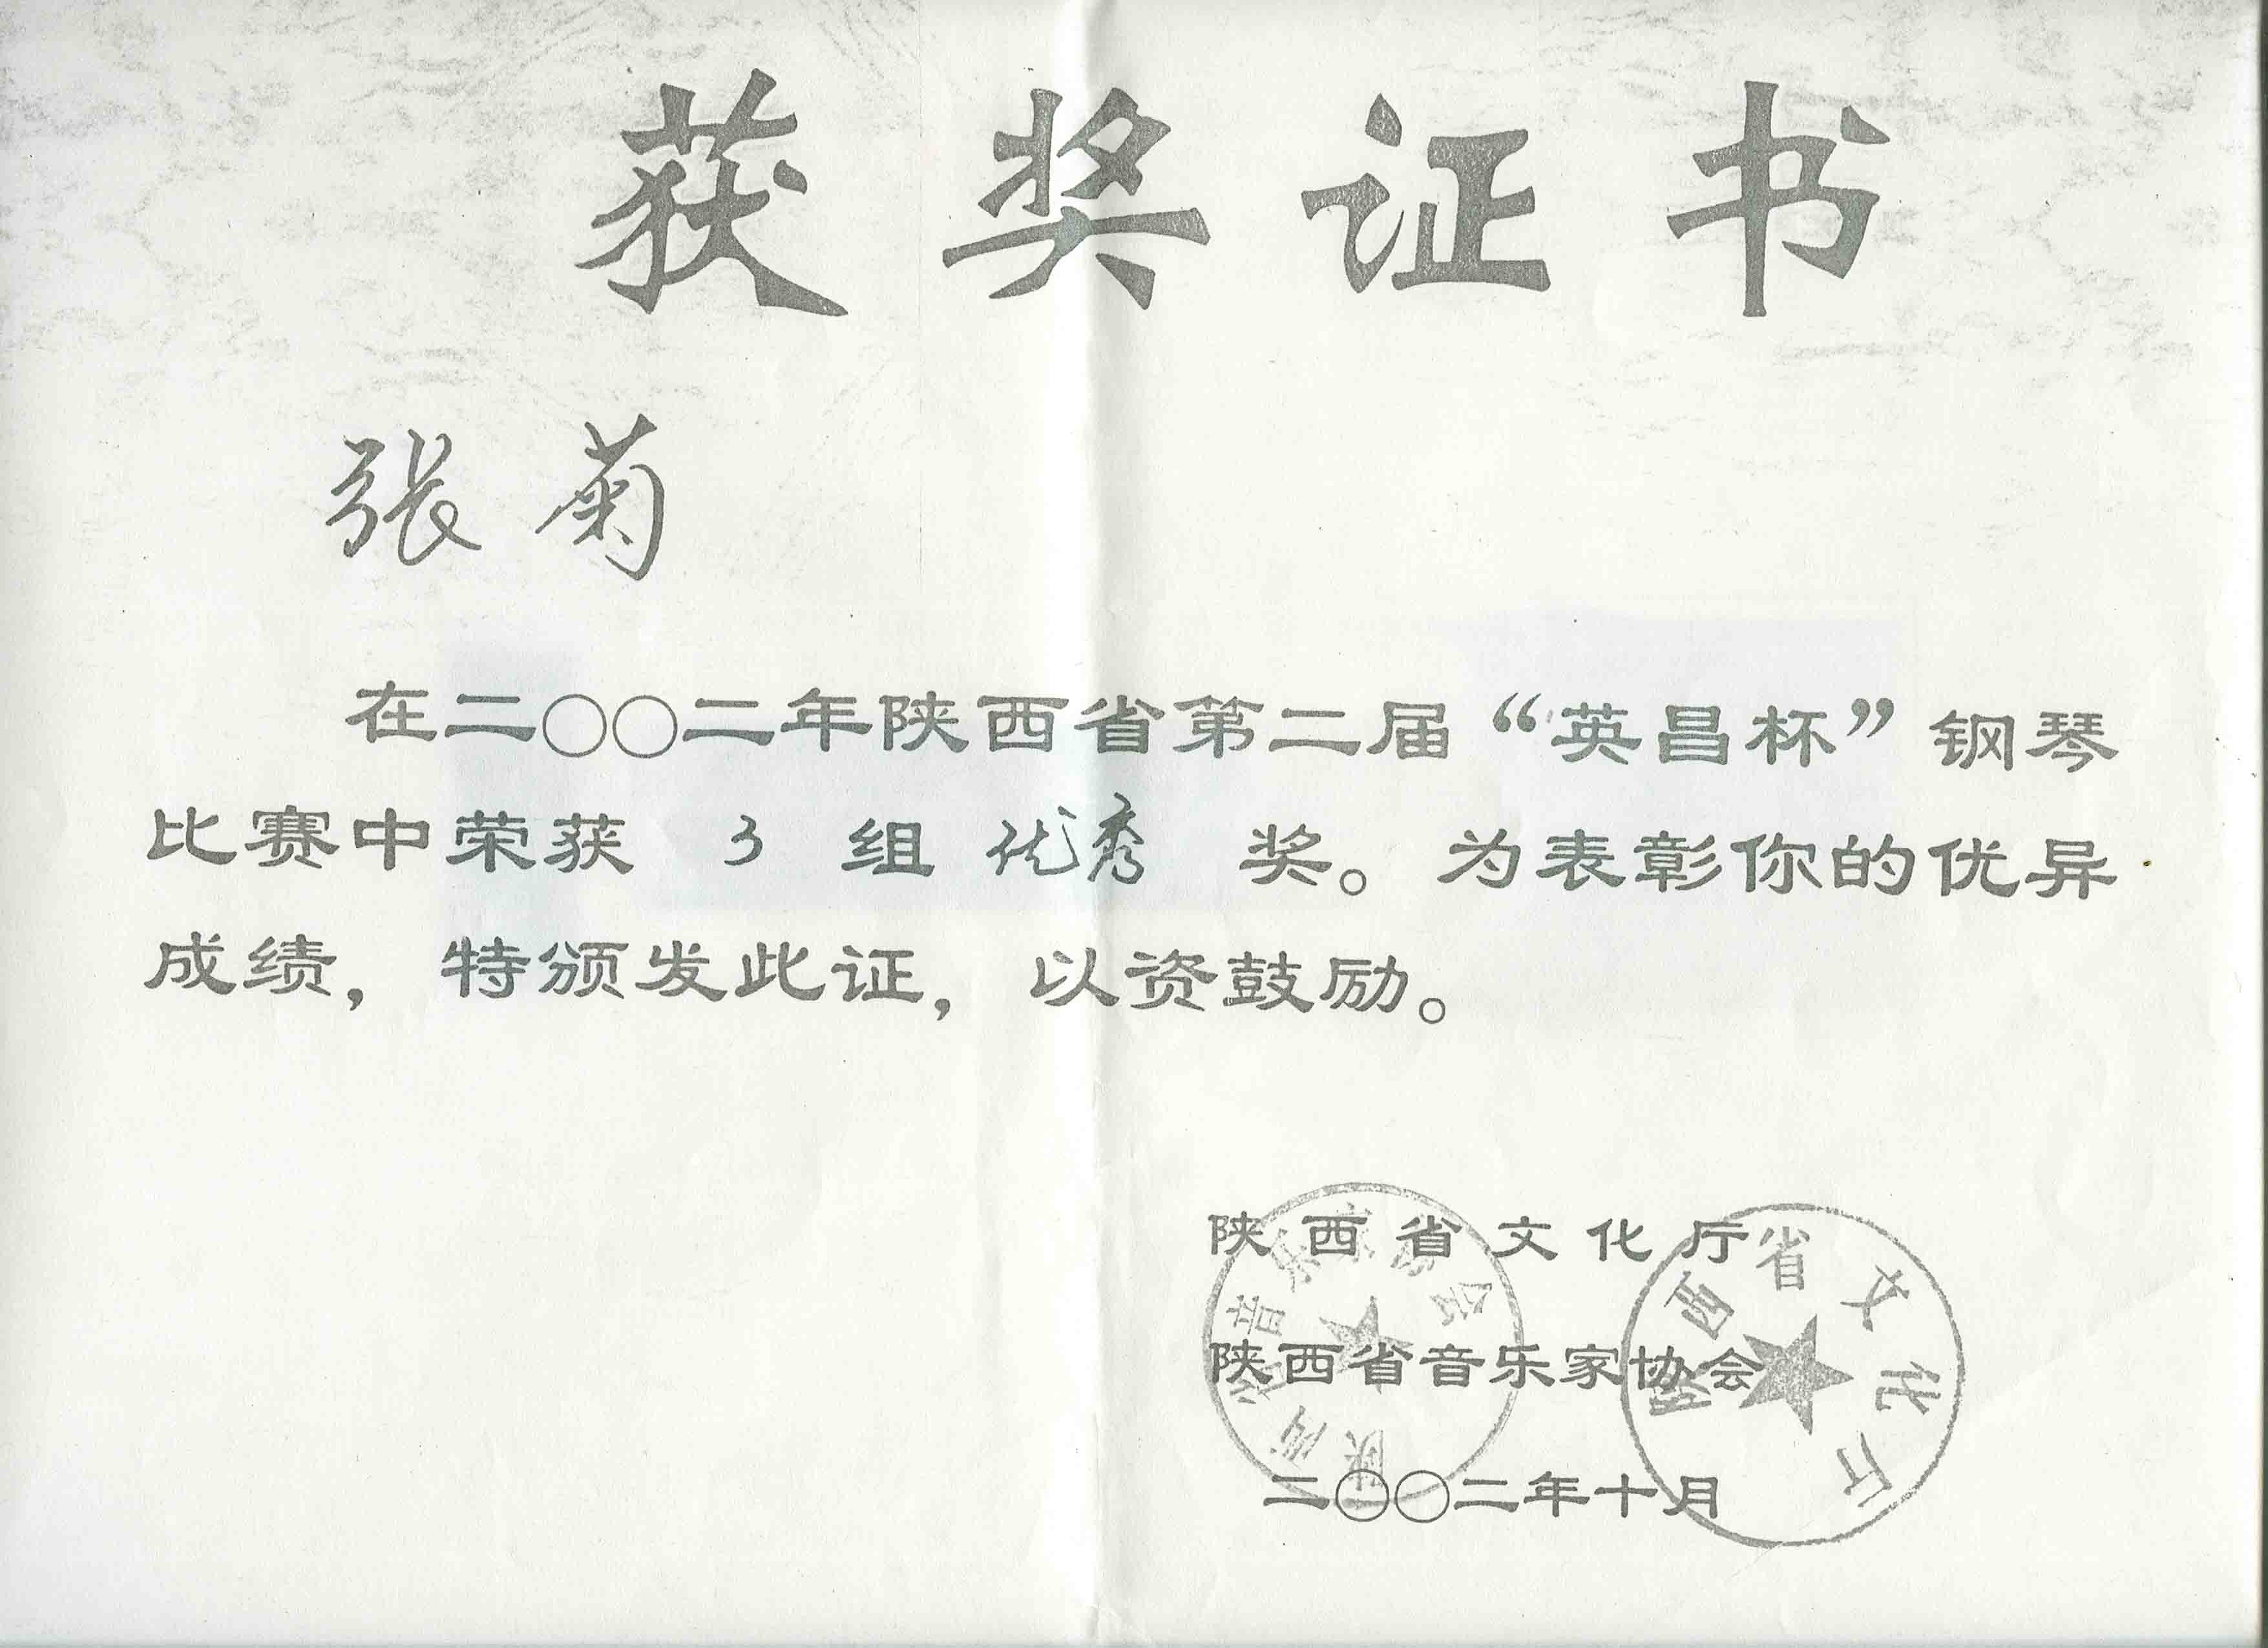 获奖证书
张菊
在二〇〇二年陕西省第二届“英昌杯”钢琴
比赛中荣获 3 组 优秀 奖。为表彰你的优异
成绩，特颁发此证，以资鼓励。
陕西省文化厅
陕西省音乐家协会
二〇〇二年十月
陕西省音乐家协会
陕西省文化厅